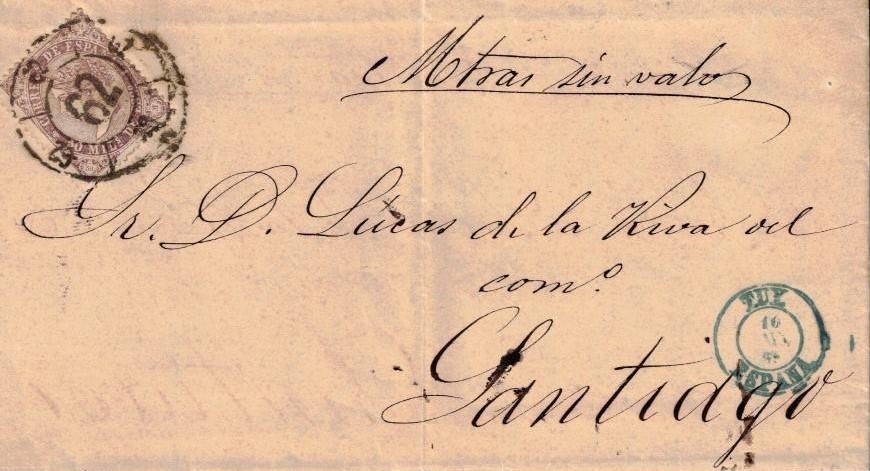 CORREOS DE ESPAÑA
62
62
62
Mtras sin valor
Sr. D. Lúcas de la Riva del
comº.
Santiago
TUY
16
ESPAÑA